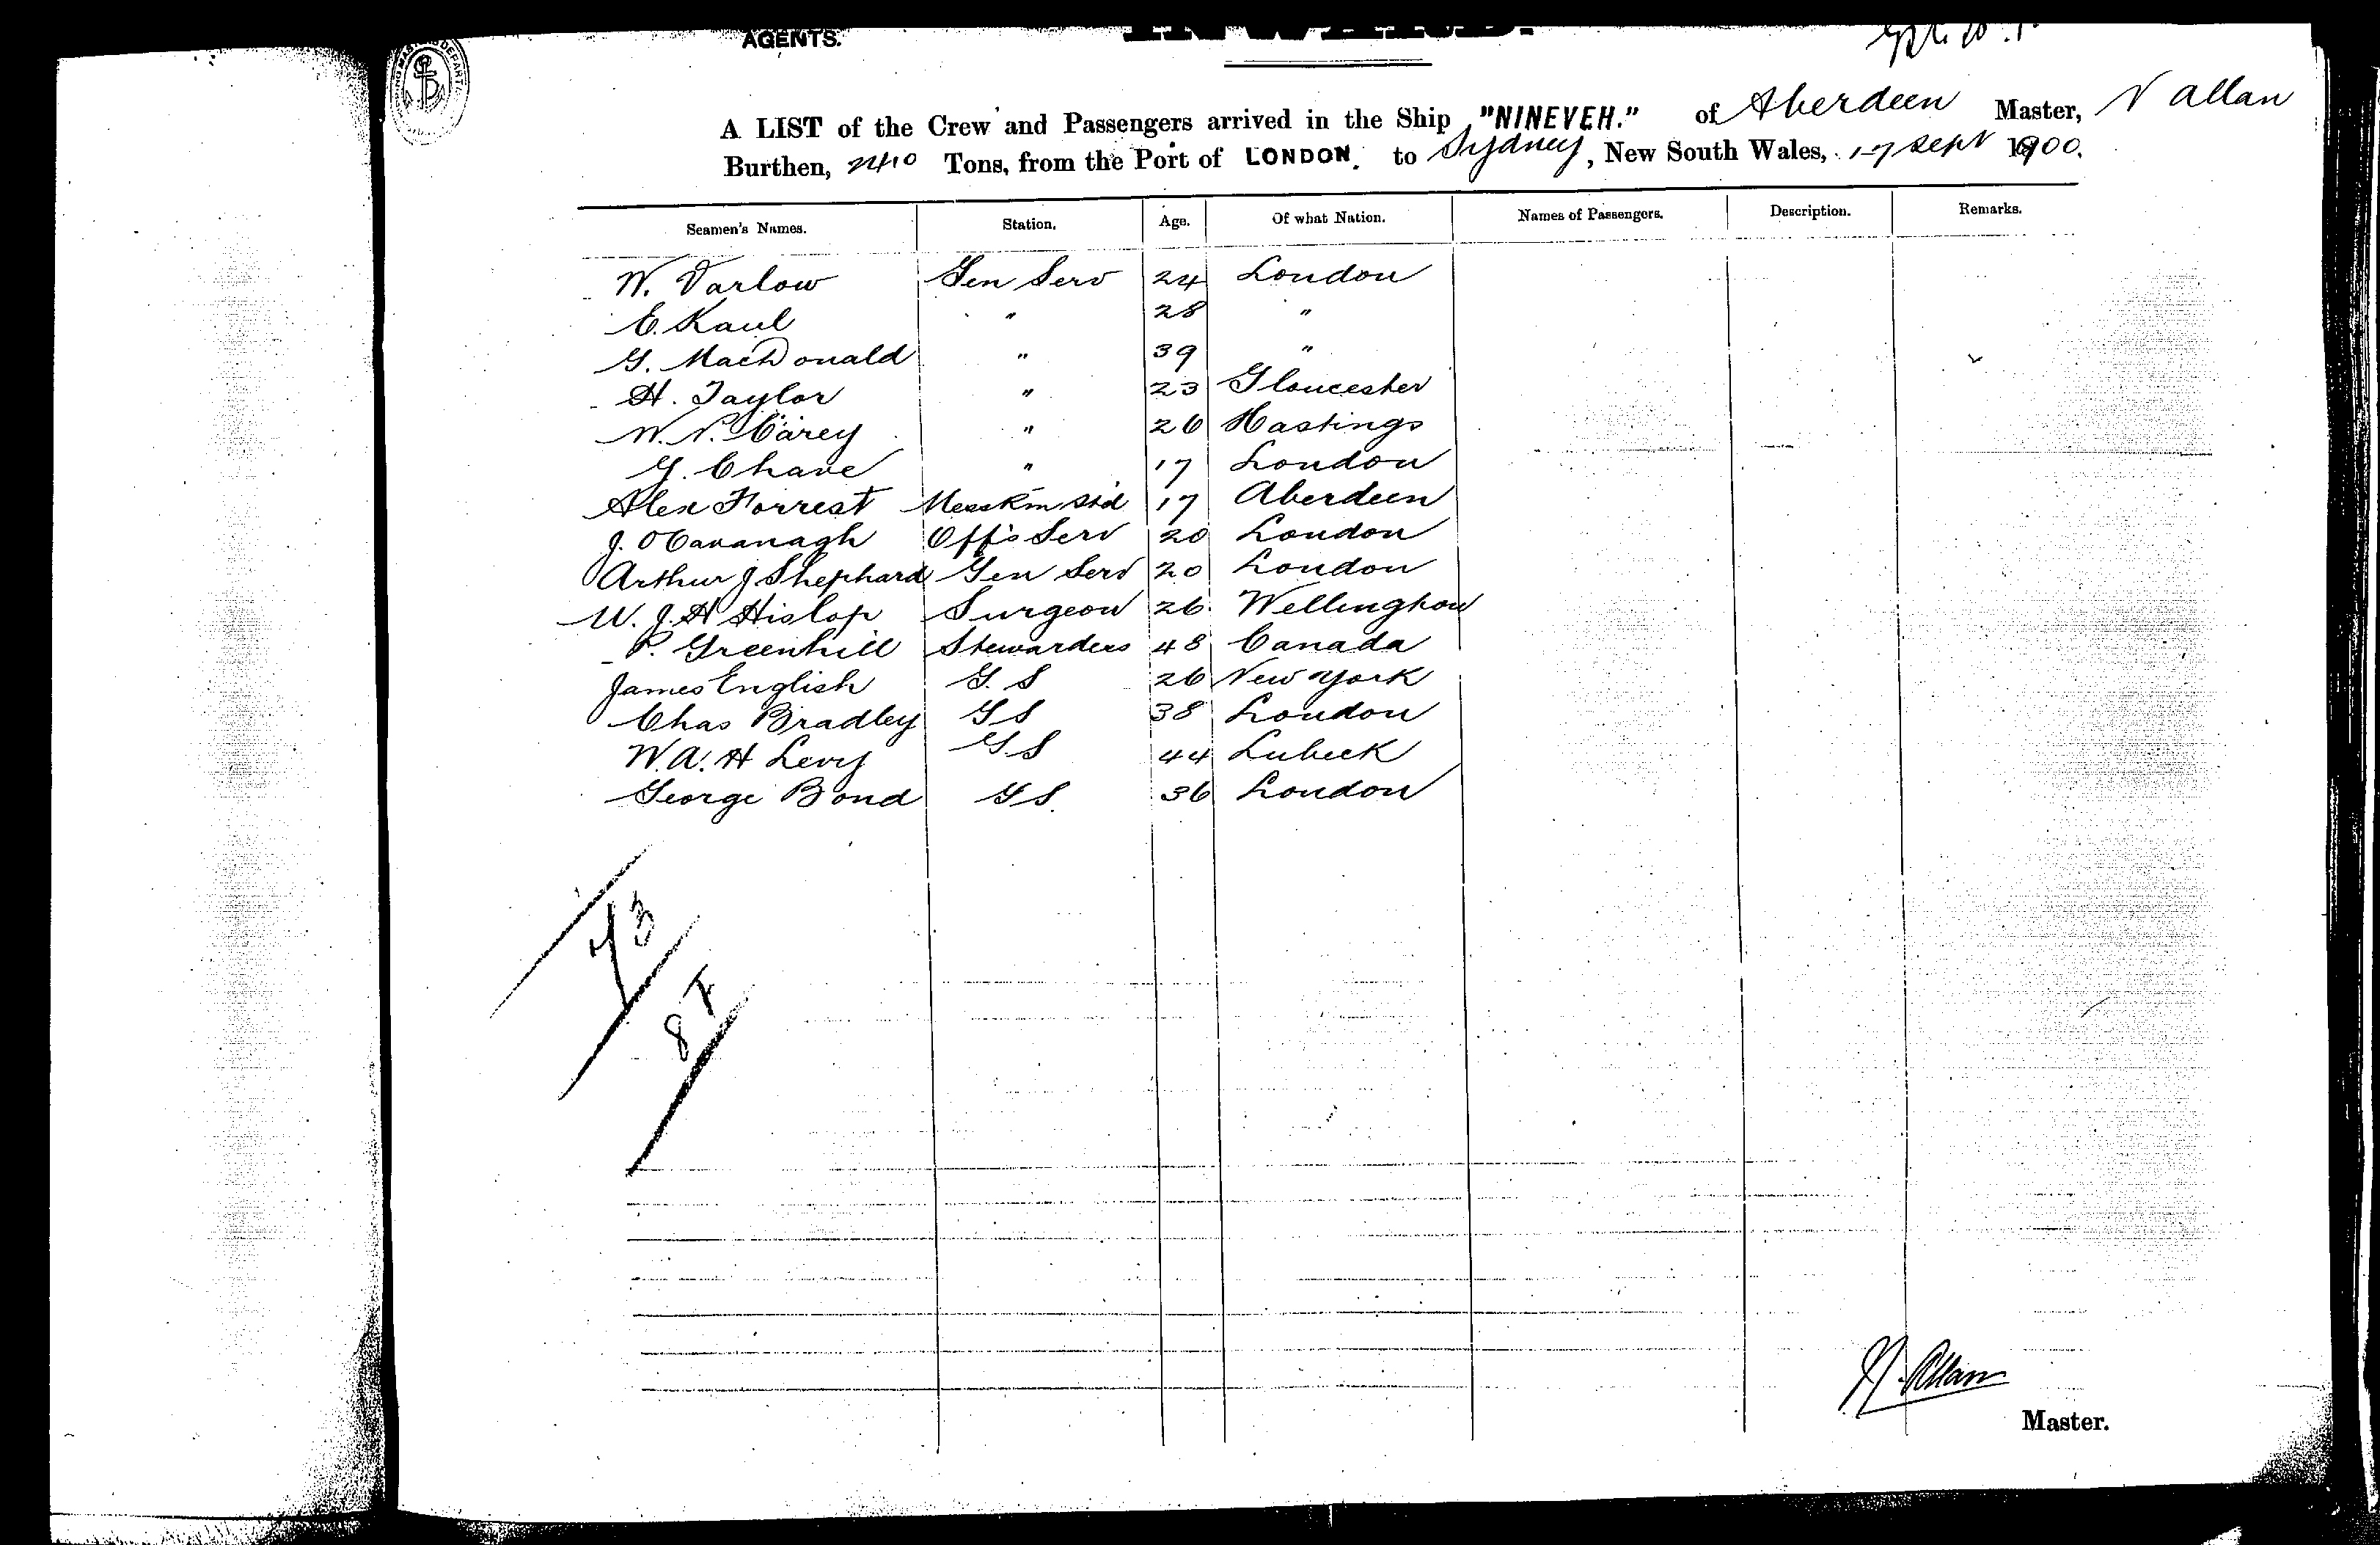 AGENTS.
INWARD.
A LIST of the Crew and Passengers arrived in the Ship "NINEVEH." of Aberdeen Master, N Allan
Burthen, 2440 Tons, from the Port of LONDON. to Sydney, New South Wales, 17 Sept 1900.
Seamen's Names. Station. Age. Of what Nation. Names of Passengers. Description. Remarks.
W. Varlow Gen Serv 24 London
E. Kaul " 28 "
G. MacDonald " 39 "
H. Taylor " 23 Gloucester
W. N. Carey " 26 Hastings
G. Chave " 17 London
Alex Forrest Messrm Std 17 Aberdeen
J. OCavanagh Off's Serv 20 London
Arthur J Shephard Gen Serv 20 London
W. J. H Hislop Surgeon 26 Wellington
P. Greenhill Stewardess 48 Canada
James English G. S 26 New York
Chas Bradley G S 38 London
W. A. H Levy G S 44 Lubeck
George Bond G S. 36 London
73
N. Allan
Master.